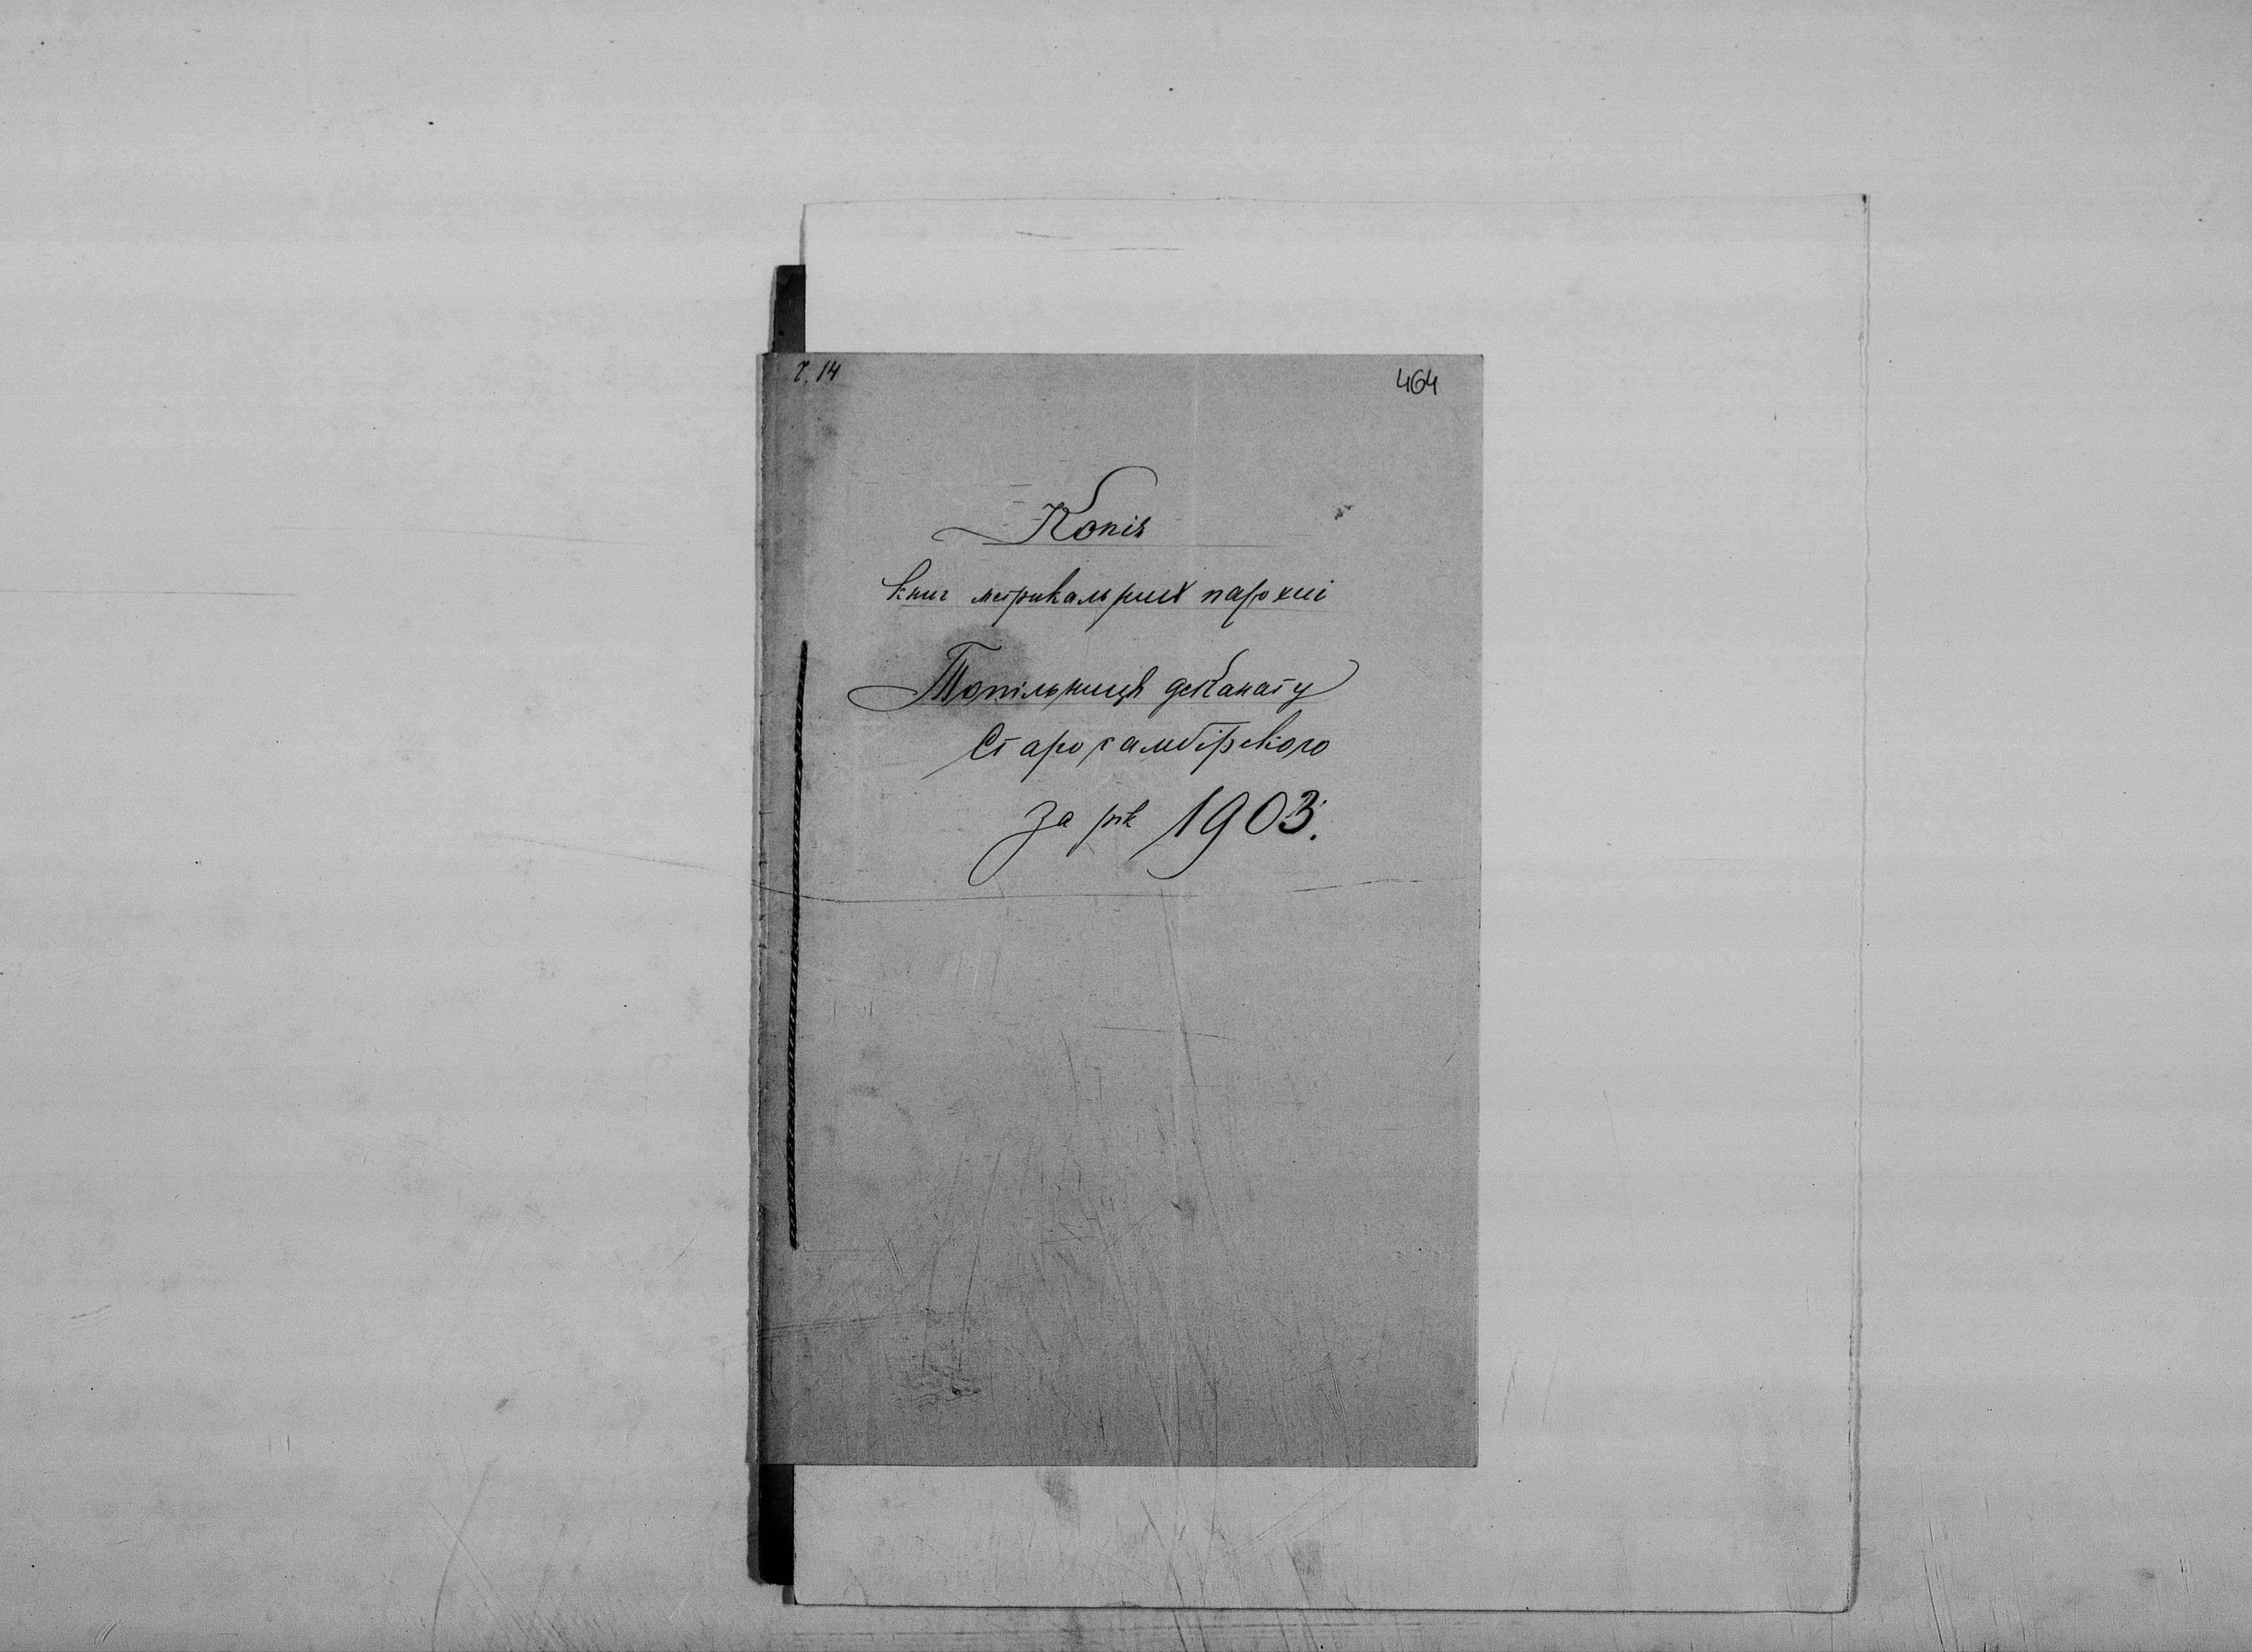 Ч. 14
464
Копія
книг метрикальних парохиї
Топільниця деканату
Старосамбірского
за рік 1903.